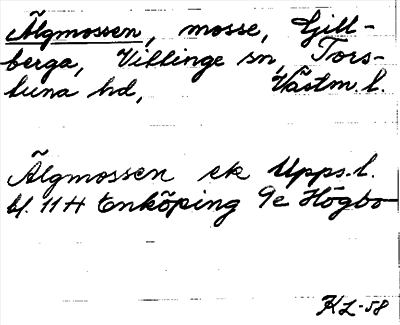 Älgmossen, mosse, Gill-
berga, Villinge sn, Tors-
buna hd, Västm. l.
Älgmossen ek Upps. l.
bl. 11 H Enköping 9e Högbo
KL-58